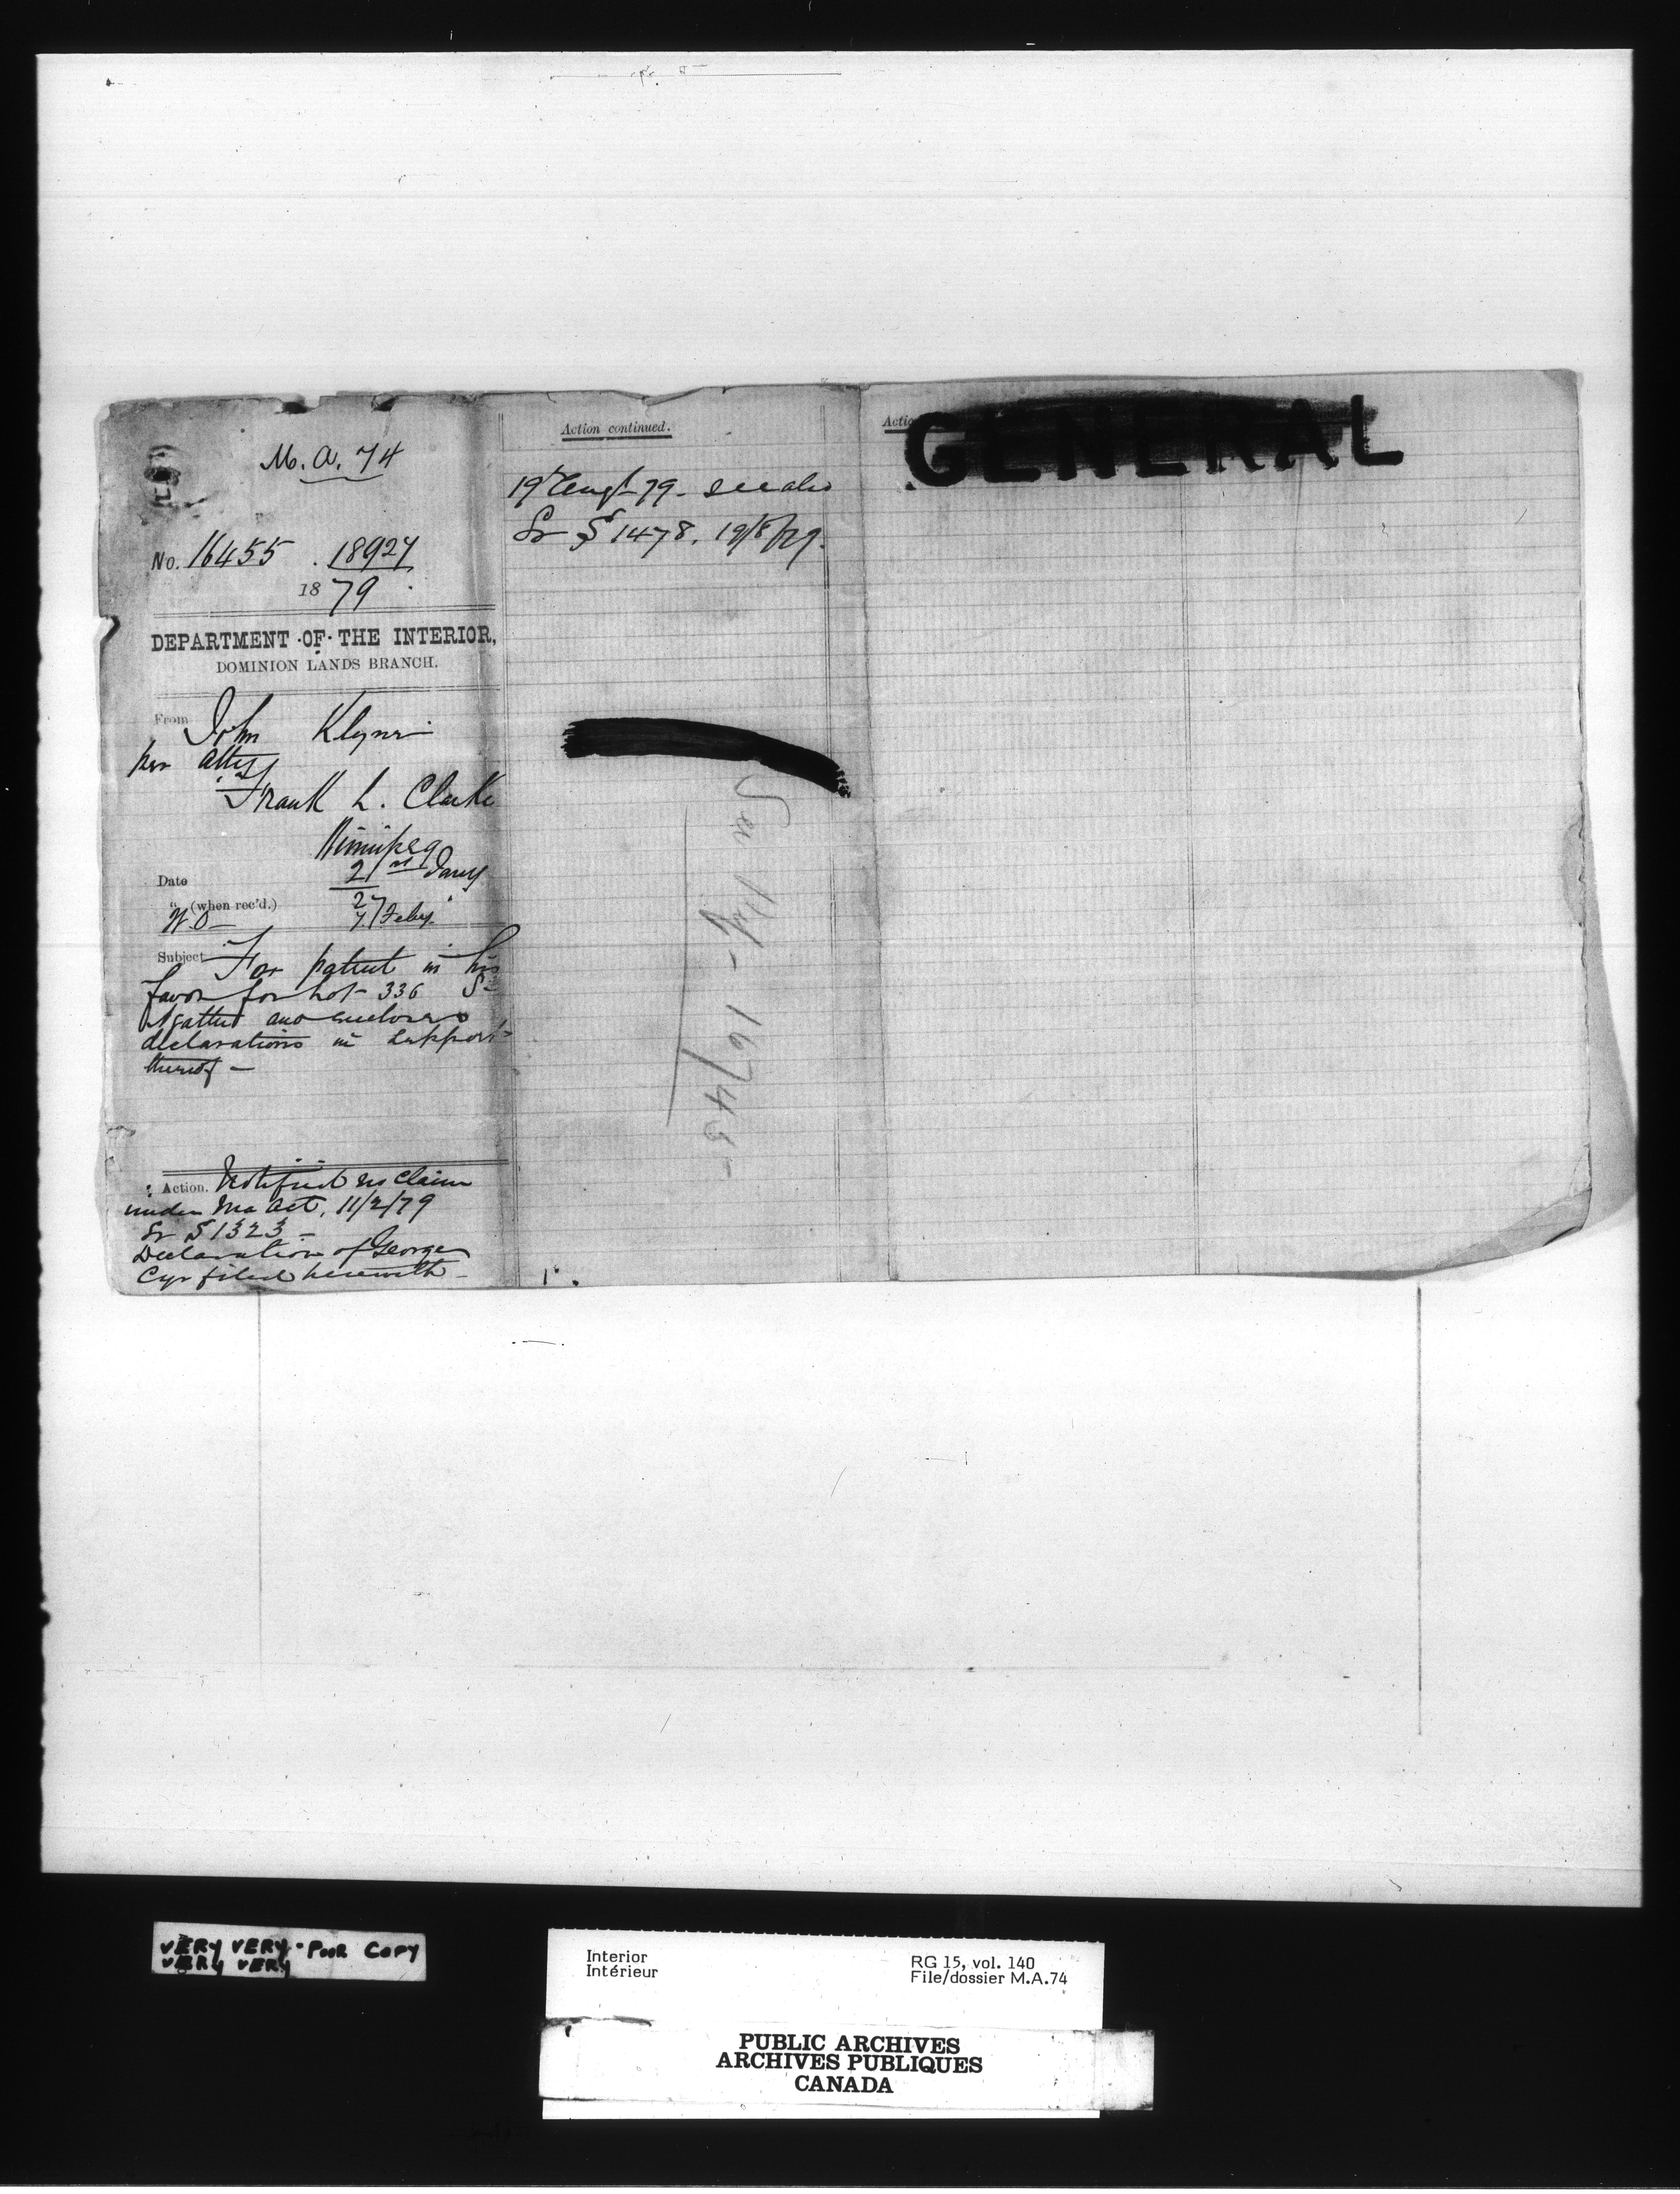 M.A. 74
No. 16455 . 18927
1879
DEPARTMENT OF THE INTERIOR,
DOMINION LANDS BRANCH.
From John Klyne
per atty
Frank L. Clarke
Winnipeg
Date 21st Jany
" (when rec'd.) 27 "
W.O— 7/Feby.
Subject For patent in his
favor for Lot 336 St
Agathe and encloses
declarations in support
thereof —
Action. Notified no claim
under Ma Act, 11/2/79
Lr § 1323 —
Declaration of George
Cyr filed herewith —
Action continued.
19th Augt 79 - see also
Lr § 1478. 19/8/79.
16745
Actio
GENERAL
VERY VERY - POOR COPY
VERY VERY
Interior
Intérieur
RG 15, vol. 140
File/dossier M.A.74
PUBLIC ARCHIVES
ARCHIVES PUBLIQUES
CANADA